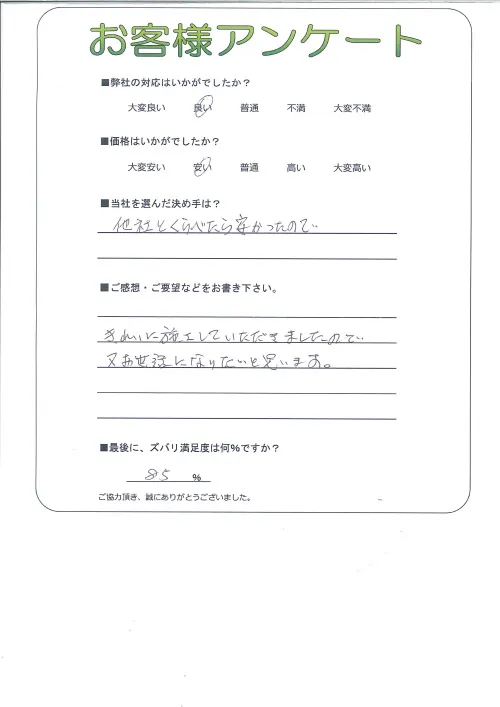 お客様アンケート
■弊社の対応はいかがでしたか？
大変良い 良い 普通 不満 大変不満
■価格はいかがでしたか？
大変安い 安い 普通 高い 大変高い
■当社を選んだ決め手は？
他社とくらべたら安かったので
■ご感想・ご要望などをお書き下さい。
きれいに施工していただきましたので
又お世話になりたいと思います。
■最後に、ズバリ満足度は何％ですか？
85 %
ご協力頂き、誠にありがとうございました。